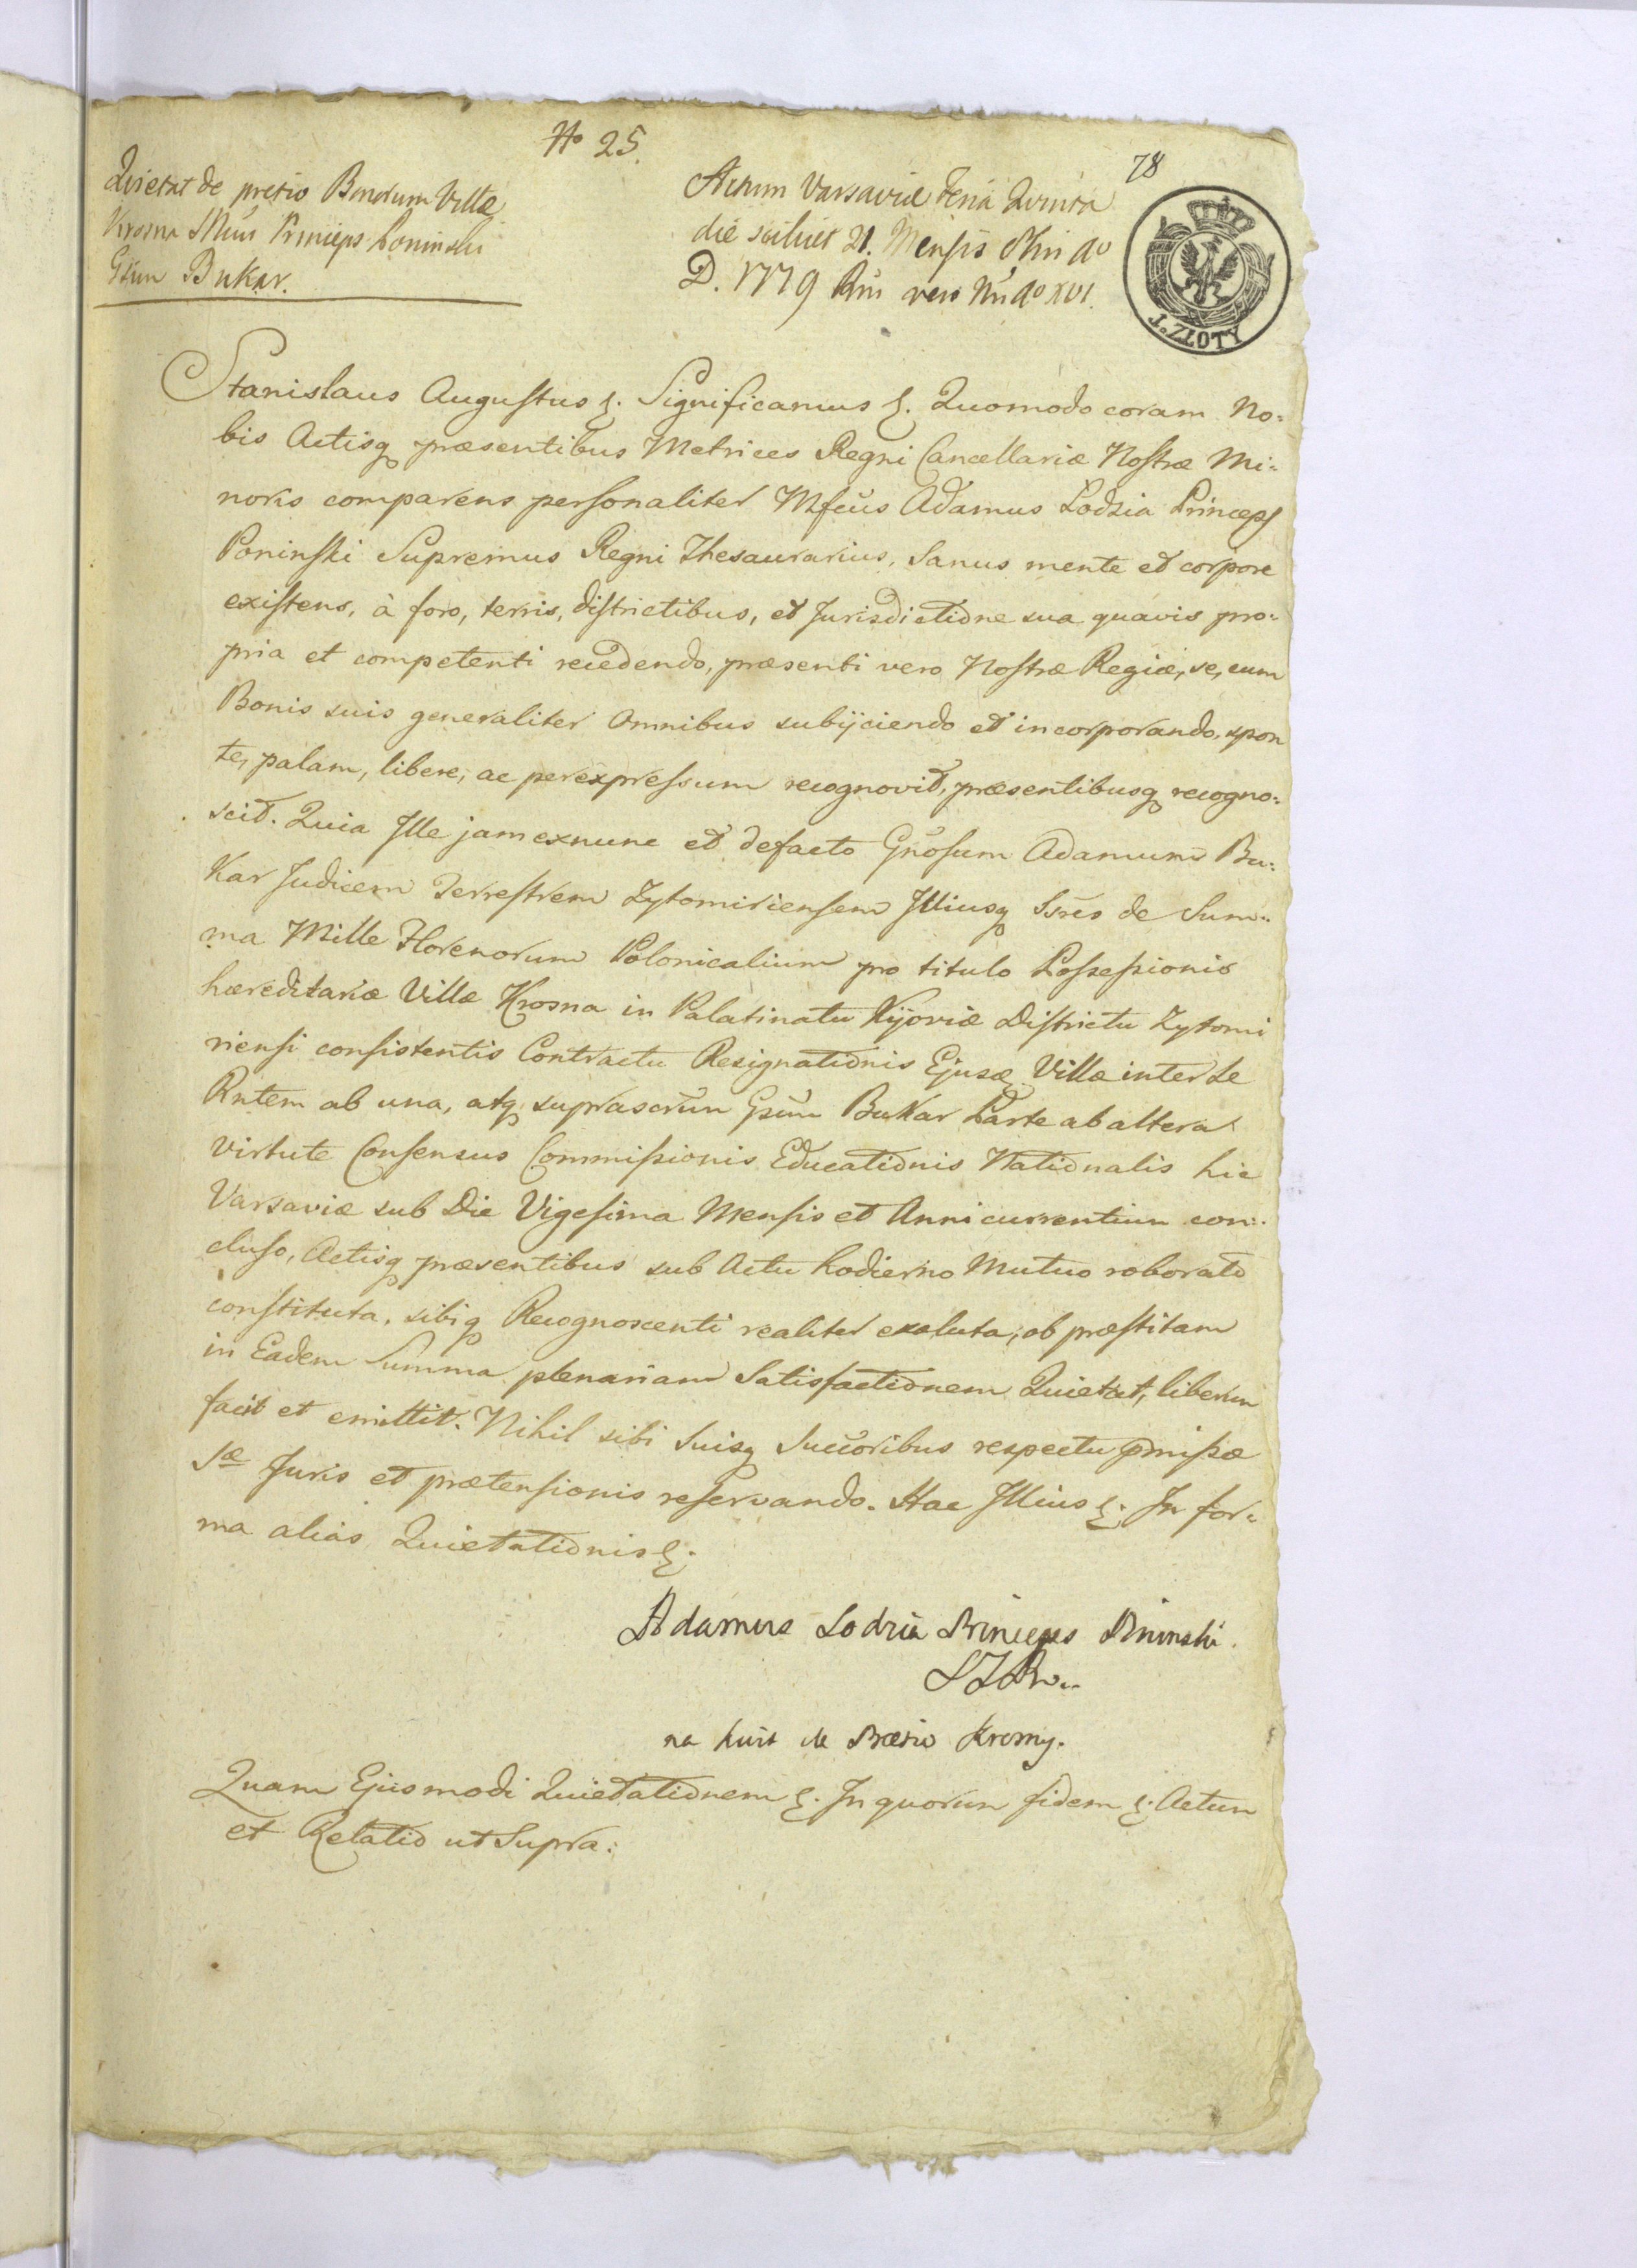 No 25.
78
Quietat de pretio Bonorum Villæ
Krosna Princeps Poninski
Bukar.
Actum Varsaviæ Feria Quinta
die scilicet 21. Mensis
D. 1779 vero XVI.
1. ZŁOTY
Stanislaus Augustus &. Significamus &. Quomodo coram No-
bis Actisq præsentibus Metrices Regni Cancellariæ Nostræ Mi-
noris comparens personaliter Mfcus Adamus Lodzia Princeps
Poninski Supremus Regni Thesaurarius, Sanus mente et corpore
existens, à foro, terris, districtibus, et Jurisdictione sua quavis pro-
pria et competenti recedendo, præsenti vero Nostræ Regiæ, se, cum
Bonis suis generaliter Omnibus subijciendo et incorporando, spon
te, palam, libere, ac per expressum recognovit, præsentibusq recogno-
scit. Quia Ille jam exnunc et defacto Gnosum Adamum Bu-
kar Judicem Terrestrem Zytomiriensem Illiusq Ssres de Sum-
ma Mille Florenorum Polonicalium pro titulo Possessionis
hæreditariæ Villæ Krosna in Palatinatu Kijoviæ Districtu Zytomi
riensi consistentis Contractu Resignationis Ejusæ Villæ inter se
Rntem ab una, atq suprascrum Gsum Bukar Parte ab altera
virtute Consensus Commissionis Educationis Nationalis hic
Varsaviæ sub Die Vigesima Mensis et Anni currentium con-
cluso, Actisq præsentibus sub Actu hodierno Mutuo roborato
constituta, sibiq Recognoscenti realiter exoluta, ob præstitam
in Eadem Summa plenariam Satisfactionem Quietat, liberum
facit et emittit. Nihil sibi Suisq Succoribus respectu pmissæ
Sæ Juris et prætensionis reservando. Hac Illius &. In for-
ma alias Quietationis &.
Adamus Lodzia Princeps Poninski.
na kwit de Præsio Krosny.
Quam Ejusmodi Quietationem &. In quorum fidem &. Actum
et Relatio ut Supra.